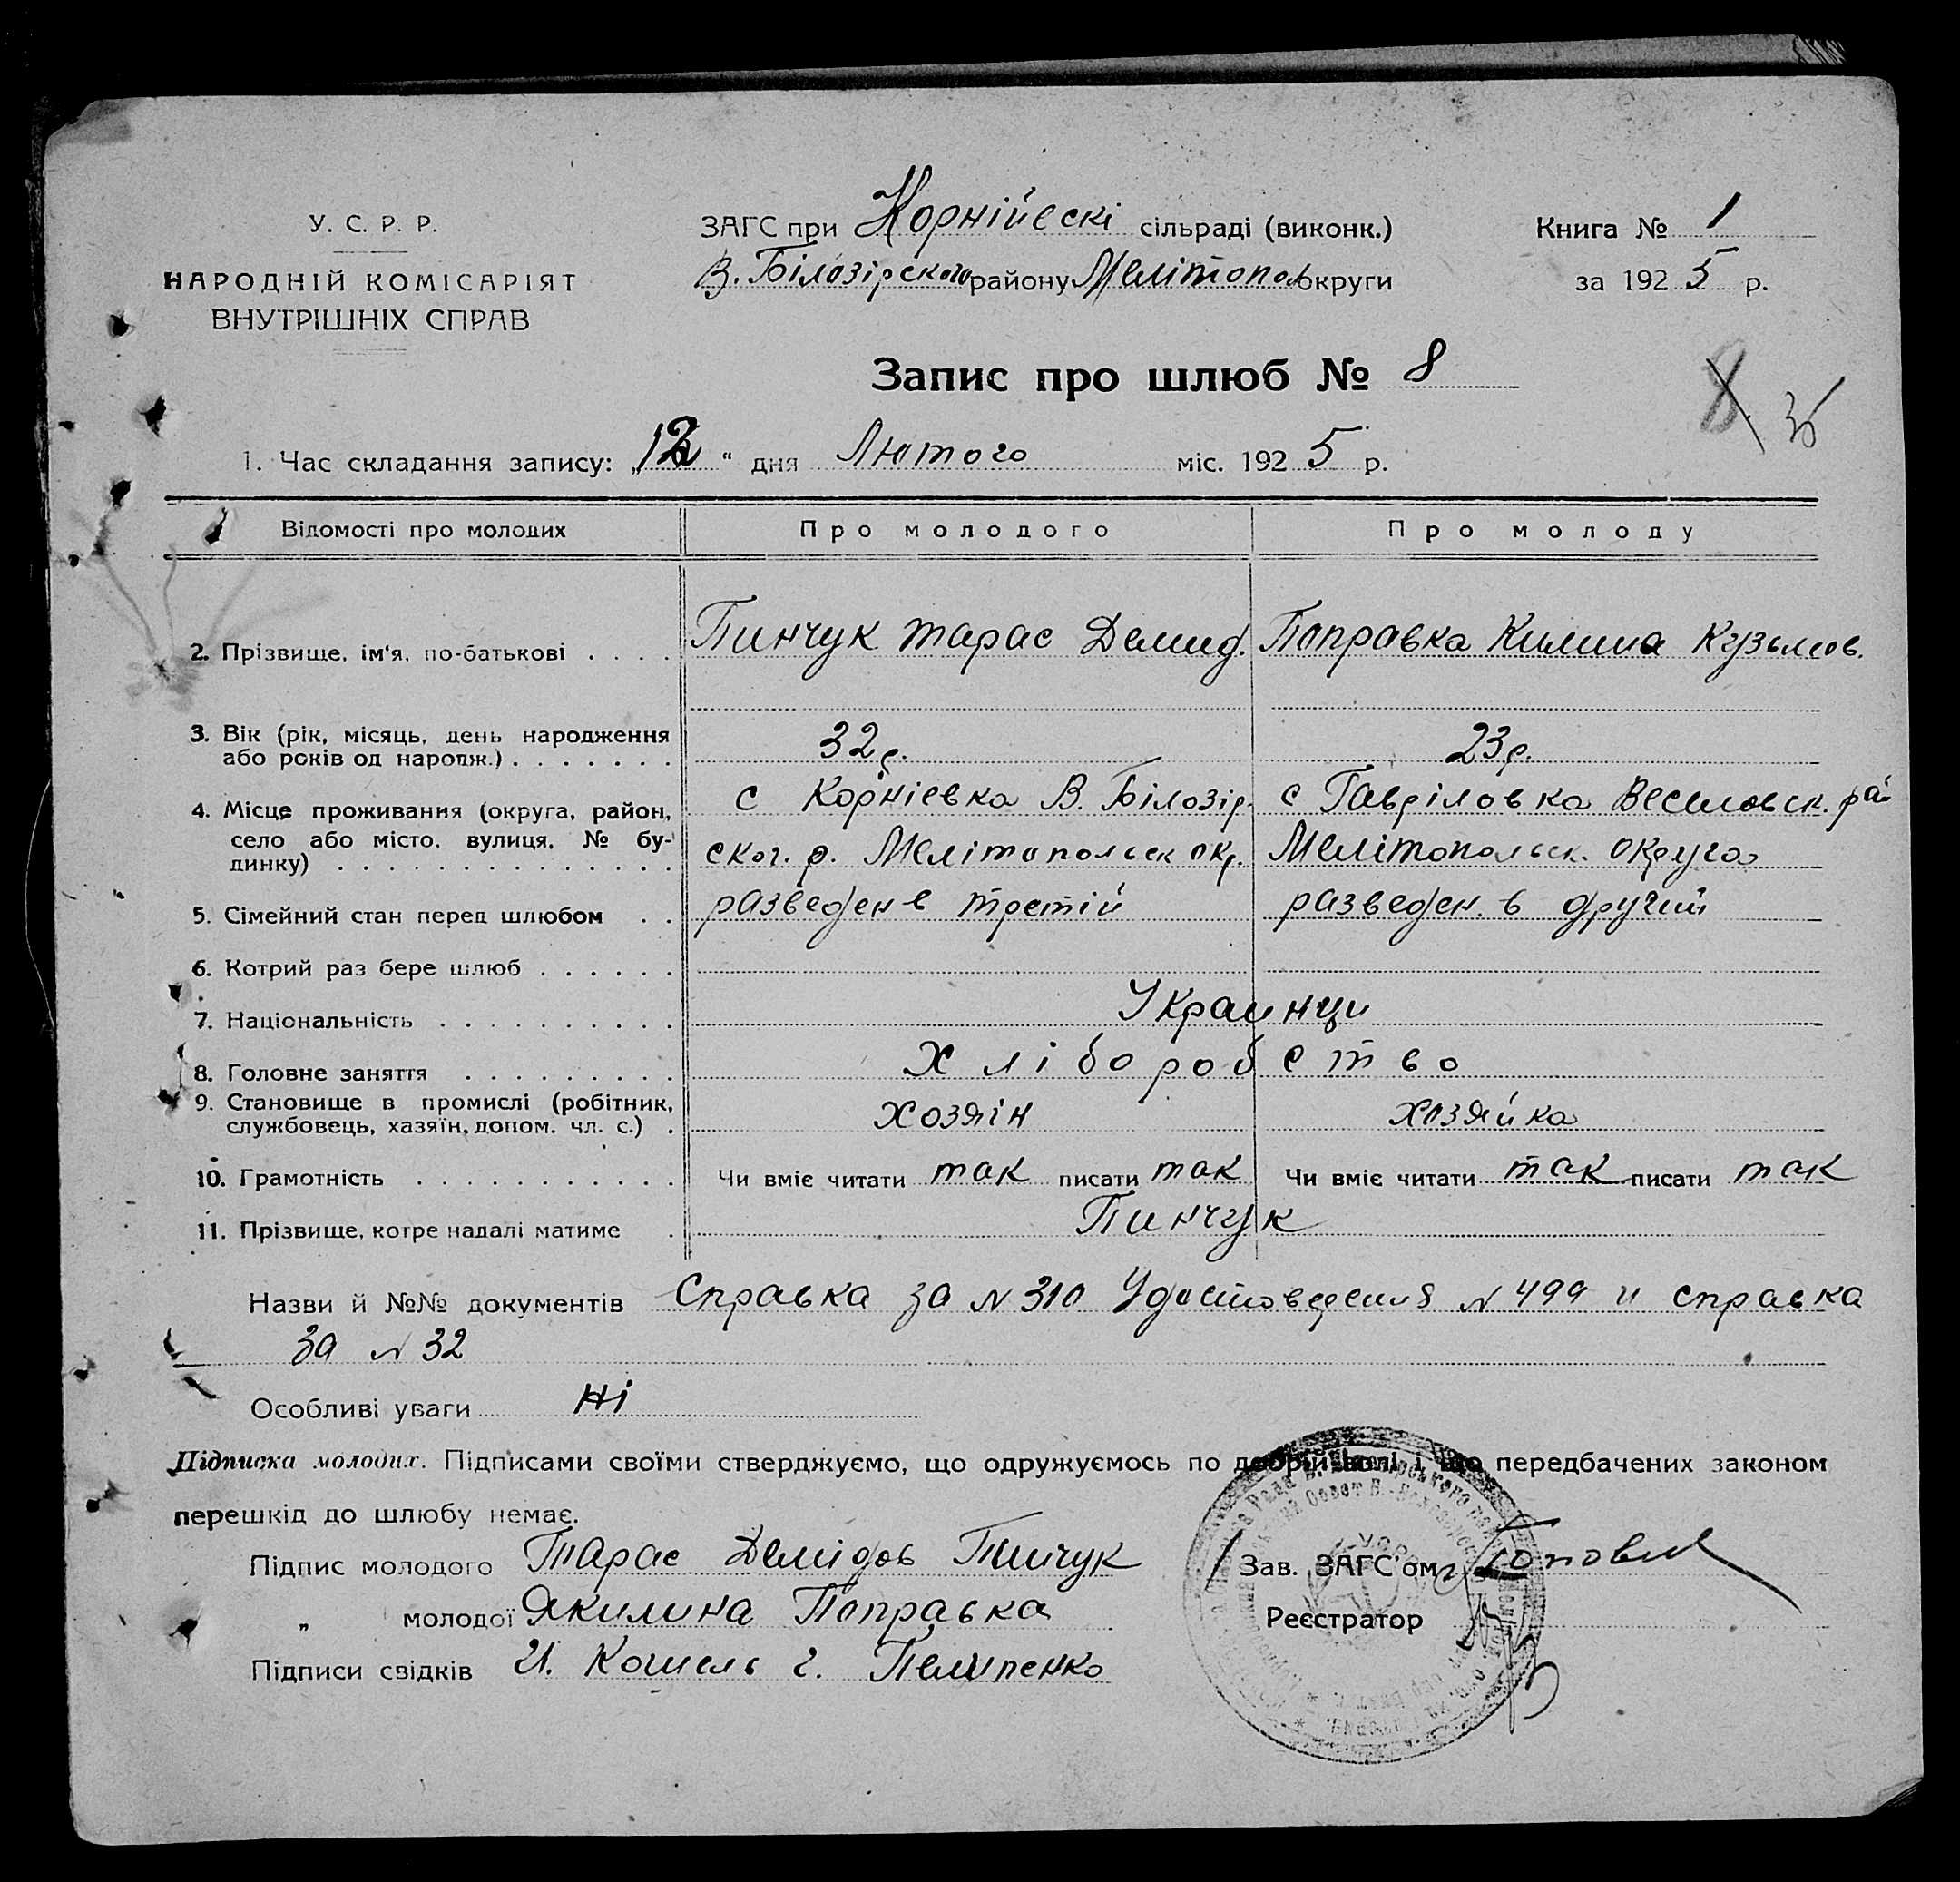 У. С. Р. Р.
НАРОДНІЙ КОМІСАРІЯТ
ВНУТРІШНІХ СПРАВ
ЗАГС при Корнійескі сільраді (виконк.)
В. Білозірского району Мелітопол округи
Книга № 1
за 1925 р.
Запис про шлюб № 8
8 35
1. Час складання запису: „12" дня Лютого міс. 1925 р.
Відомості про молодих Про молодого Про молоду
2. Прізвище, ім'я, по-батькові . . . . Пинчук Тарас Демид. Поправка Килина Кузьмов.
3. Вік (рік, місяць, день народження
або років од народж.) . . . . . . . 32 р. 23 р.
4. Місце проживання (округа, район,
село або місто, вулиця, № бу-
динку) . . . . . . . . . . . . . .
с Корніевка В. Білозір-
ског. р. Мелітопольск окр.
с Гавріловка Веселовск. рай
Мелітопольск. округа
5. Сімейний стан перед шлюбом . . разведен в третій разведен. в другий
6. Котрий раз бере шлюб . . . . . .
7. Національність . . . . . . . . . . Украинци
8. Головне заняття . . . . . . . . . хлібороб ство
9. Становище в промислі (робітник,
службовець, хазяїн, допом. чл. с.) . хозяін хозяйка
10. Грамотність . . . . . . . . . . . Чи вміє читати так писати так Чи вміє читати так писати так
11. Прізвище, котре надалі матиме . Пинчук
Назви й №№ документів Справка за N 310 Удостоведения N 499 и справка
за N 32
Особливі уваги ні
Підписка молодих. Підписами своїми стверджуємо, що одружуємось по добрій волі і що передбачених законом
перешкід до шлюбу немає.
Підпис молодого Тарас Демідов Пинчук
„ молодої Якилина Поправка
Підписи свідків И. Кошель г. Пелипенко
Зав. ЗАГС'ом
Реєстратор